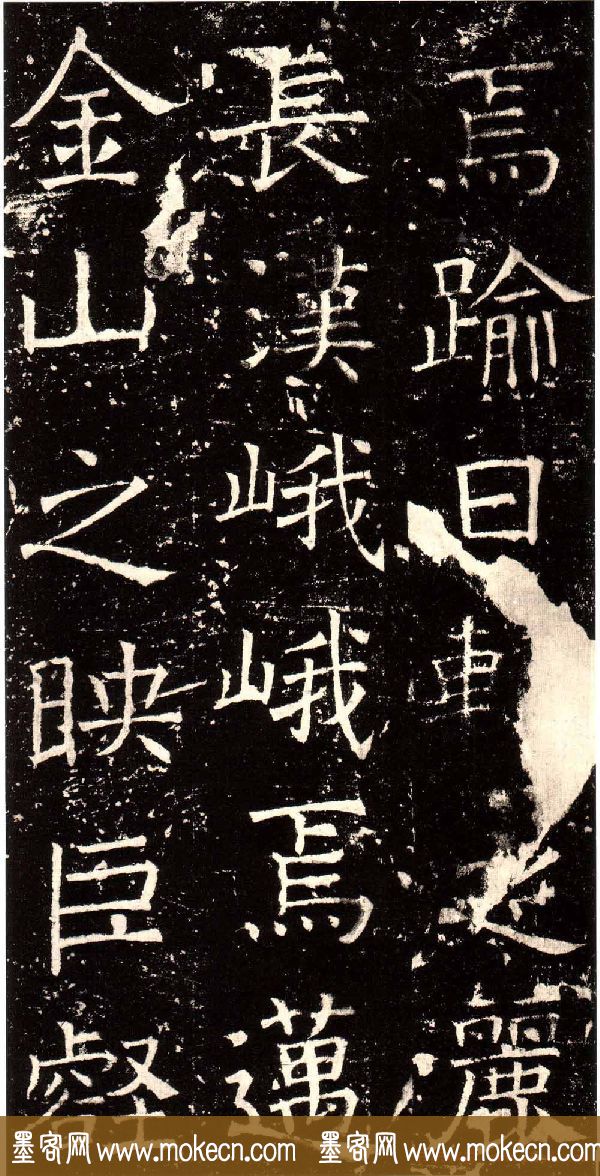 焉踰日之麗
長漢峨峨焉邁
金山之映巨壑
墨客网 www.mokecn.com 墨客网 www.mokecn.com